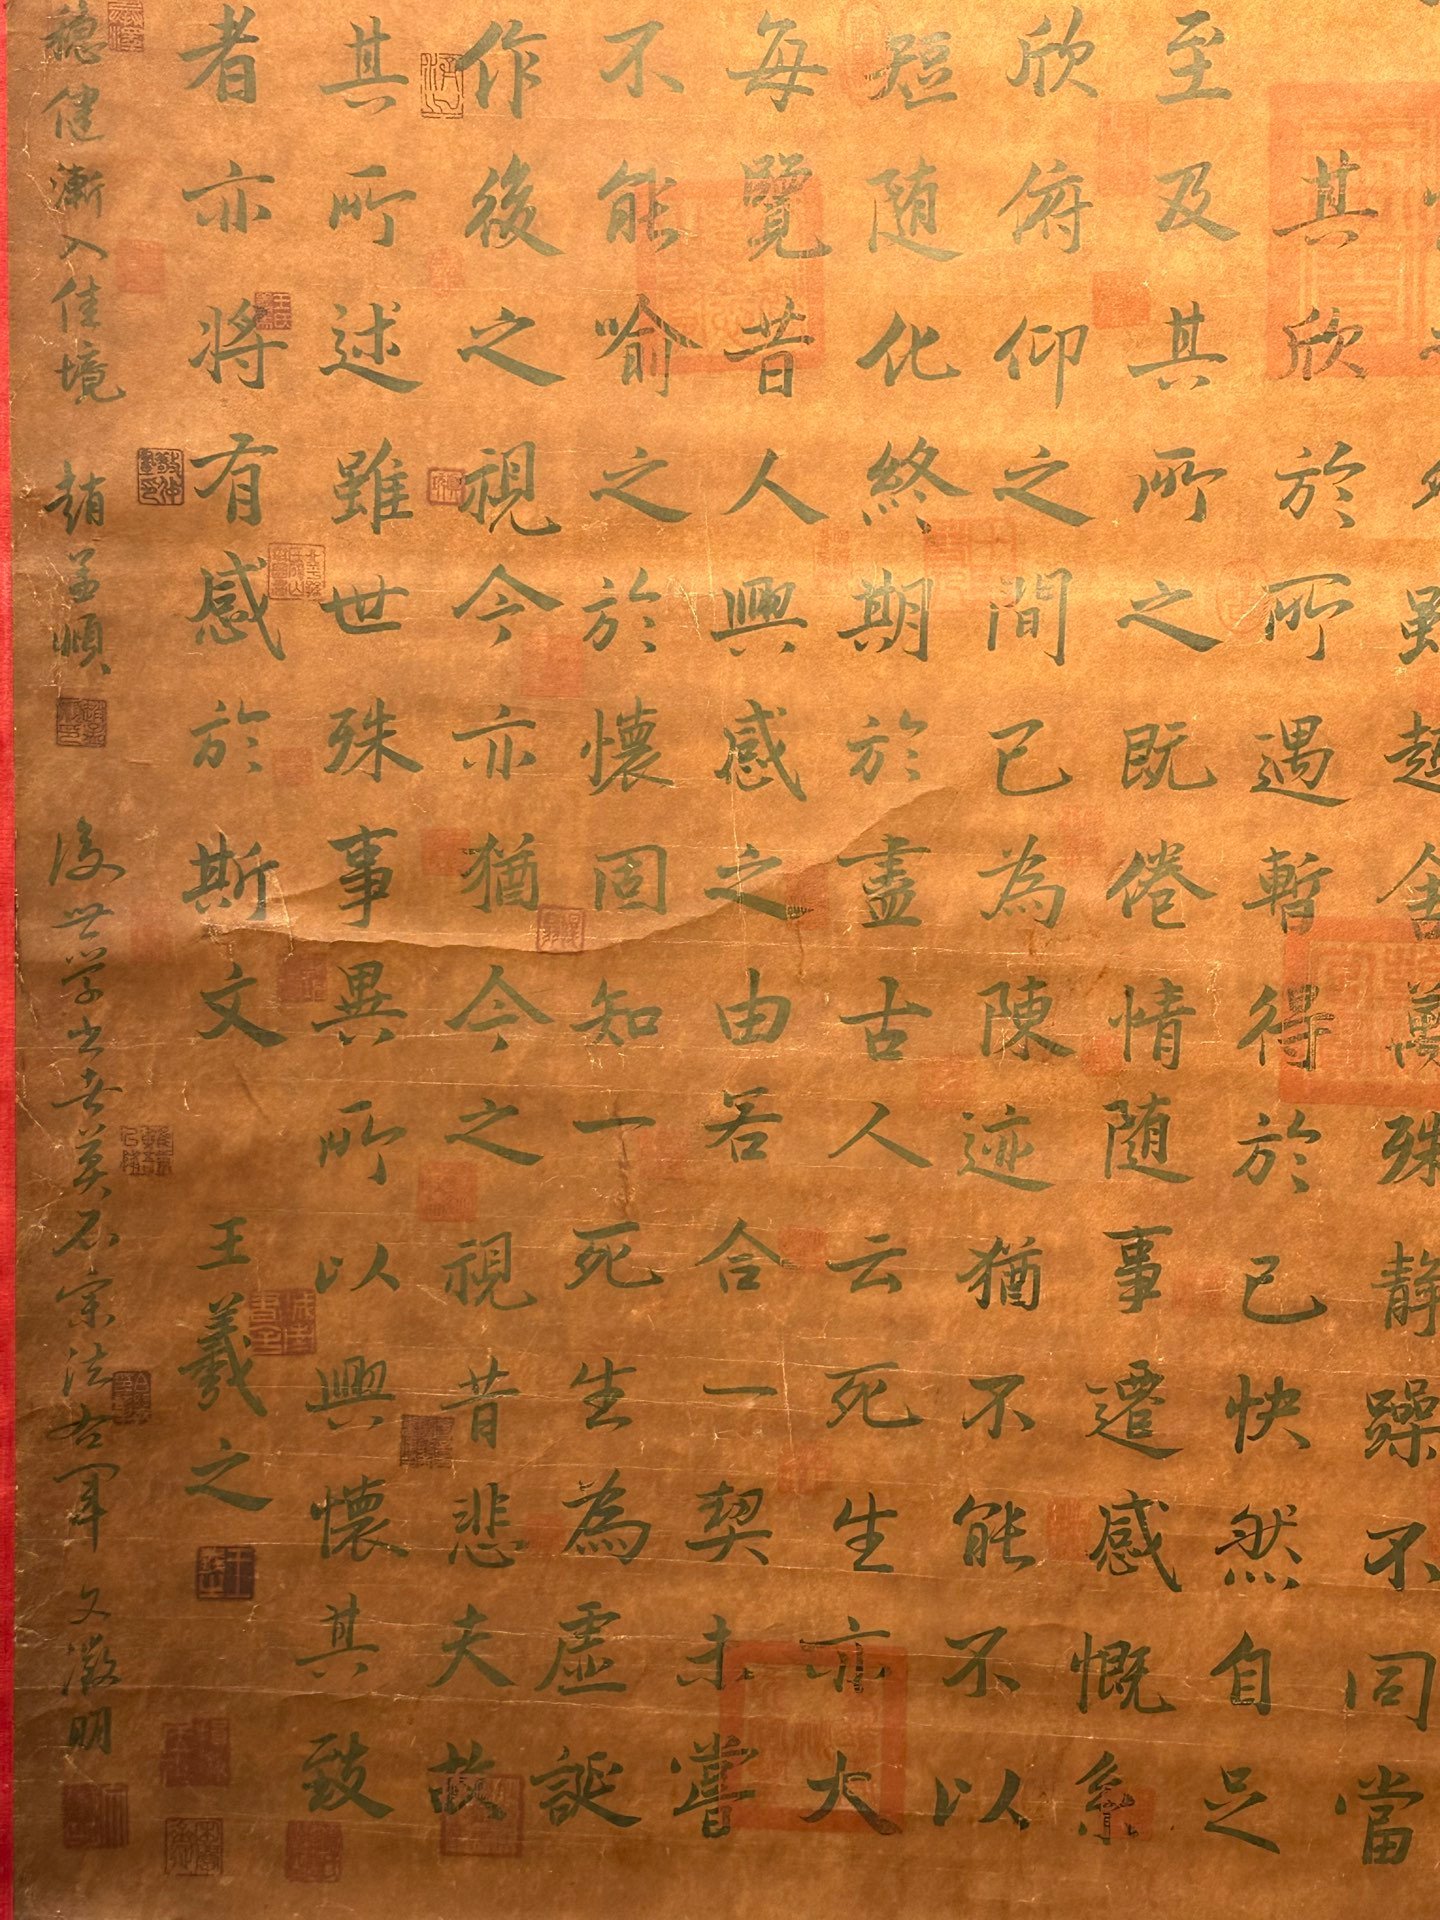 雖趣舍萬殊静躁不同當
其欣於所遇暫得於己快然自足
至及其所之既倦情随事遷感慨系
欣俯仰之間已為陳迹猶不能不以
短随化終期於盡古人云死生亦大
每覽昔人興感之由若合一契未嘗
不能喻之於懷固知一死生為虛誕
作後之視今亦猶今之視昔悲夫故
其所述雖世殊事異所以興懷其致
者亦將有感於斯文 王羲之
穩健漸入佳境 趙孟頫 後世学书者莫不宗法右軍 文徵明